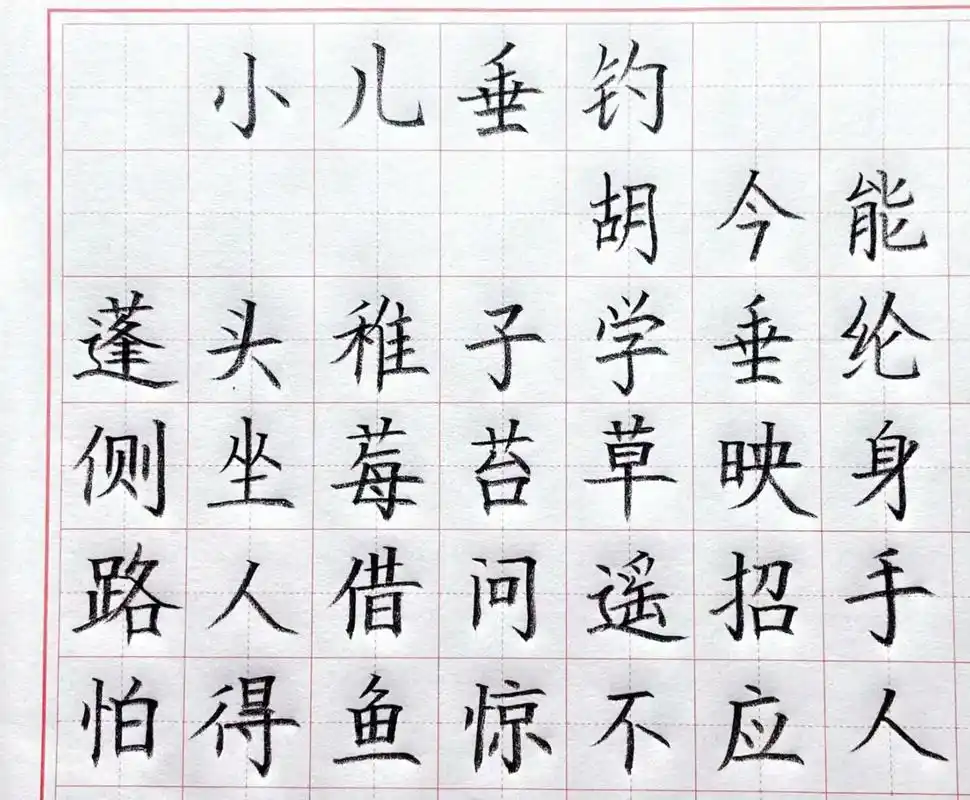 小儿垂钓
胡今能
蓬头稚子学垂纶
侧坐莓苔草映身
路人借问遥招手
怕得鱼惊不应人